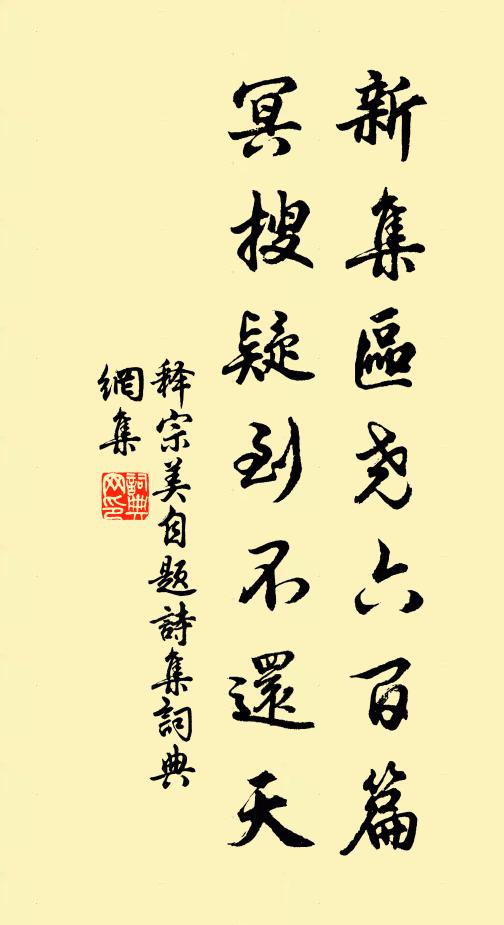 新集區尧六百篇
冥搜疑到不還天
释宗美自题詩集詞典
網集
詞典
网印